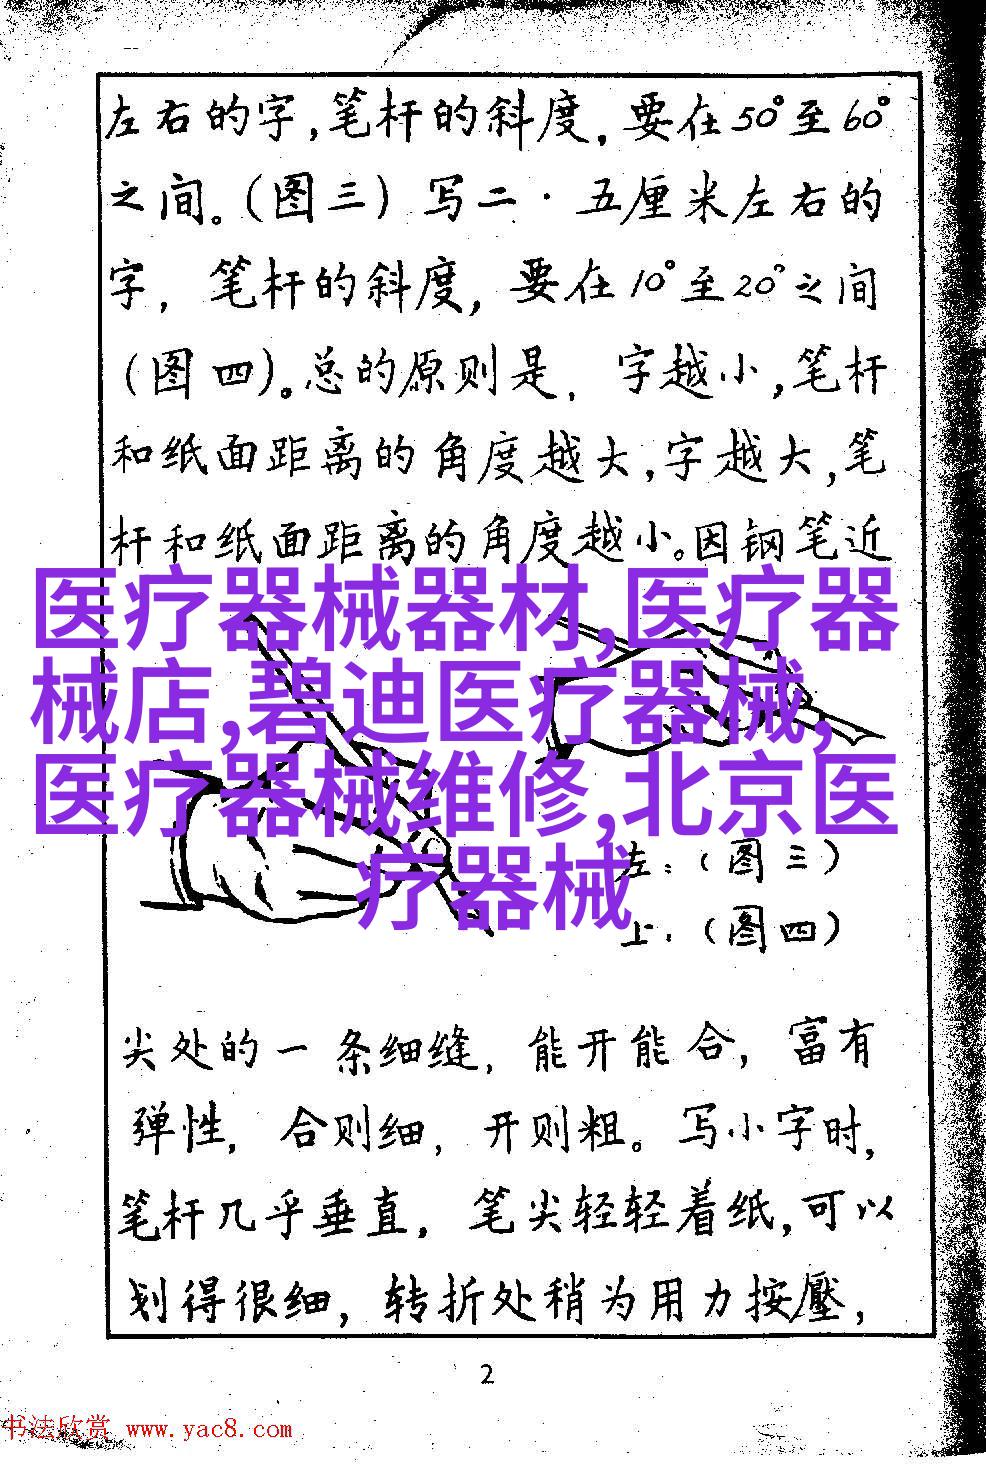 左右的字,笔杆的斜度,要在50°至60°
之间。(图三)写二·五厘米左右的
字,笔杆的斜度,要在10°至20°之间
(图四)。总的原则是,字越小,笔杆
和纸面距离的角度越大,字越大,笔
杆和纸面距离的角度越小。因钢笔近
医疗器械器材,医疗器
械店,碧迪医疗器械,
医疗器械维修,北京医
疗器械
左:(图三)
上:(图四)
尖处的一条细缝,能开能合,富有
弹性,合则细,开则粗。写小字时,
笔杆几乎垂直,笔尖轻轻着纸,可以
划得很细,转折处稍为用力按壓,
2
书法欣赏 www.yac8.com